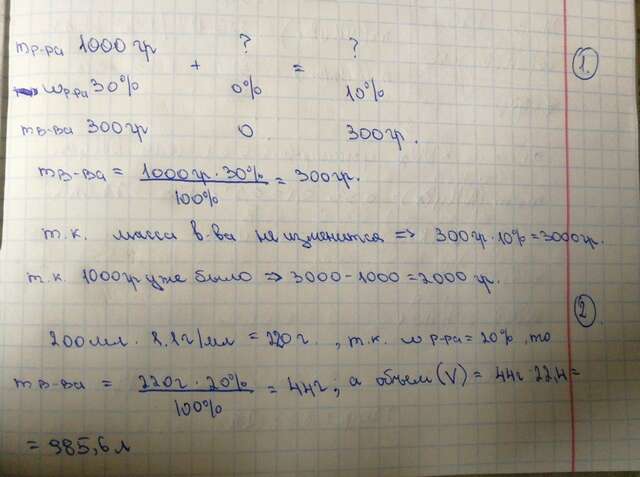 mр-ра 1000 гр ? ?
+ = 1.
wр-ра 30% 0% 10%
mв-ва 300гр 0 300гр.
mв-ва = 1000гр · 30% / 100% = 300гр.
т.к. масса в-ва не изменится => 300гр · 10% = 3000гр.
т.к. 1000гр уже было => 3000 - 1000 = 2000 гр.
2
200мл · 1.1г/мл = 220г , т.к. w р-ра = 20%, то
mв-ва = 220г · 20% / 100% = 44г; а объем (V) = 44г · 22,4 =
= 985,6 л